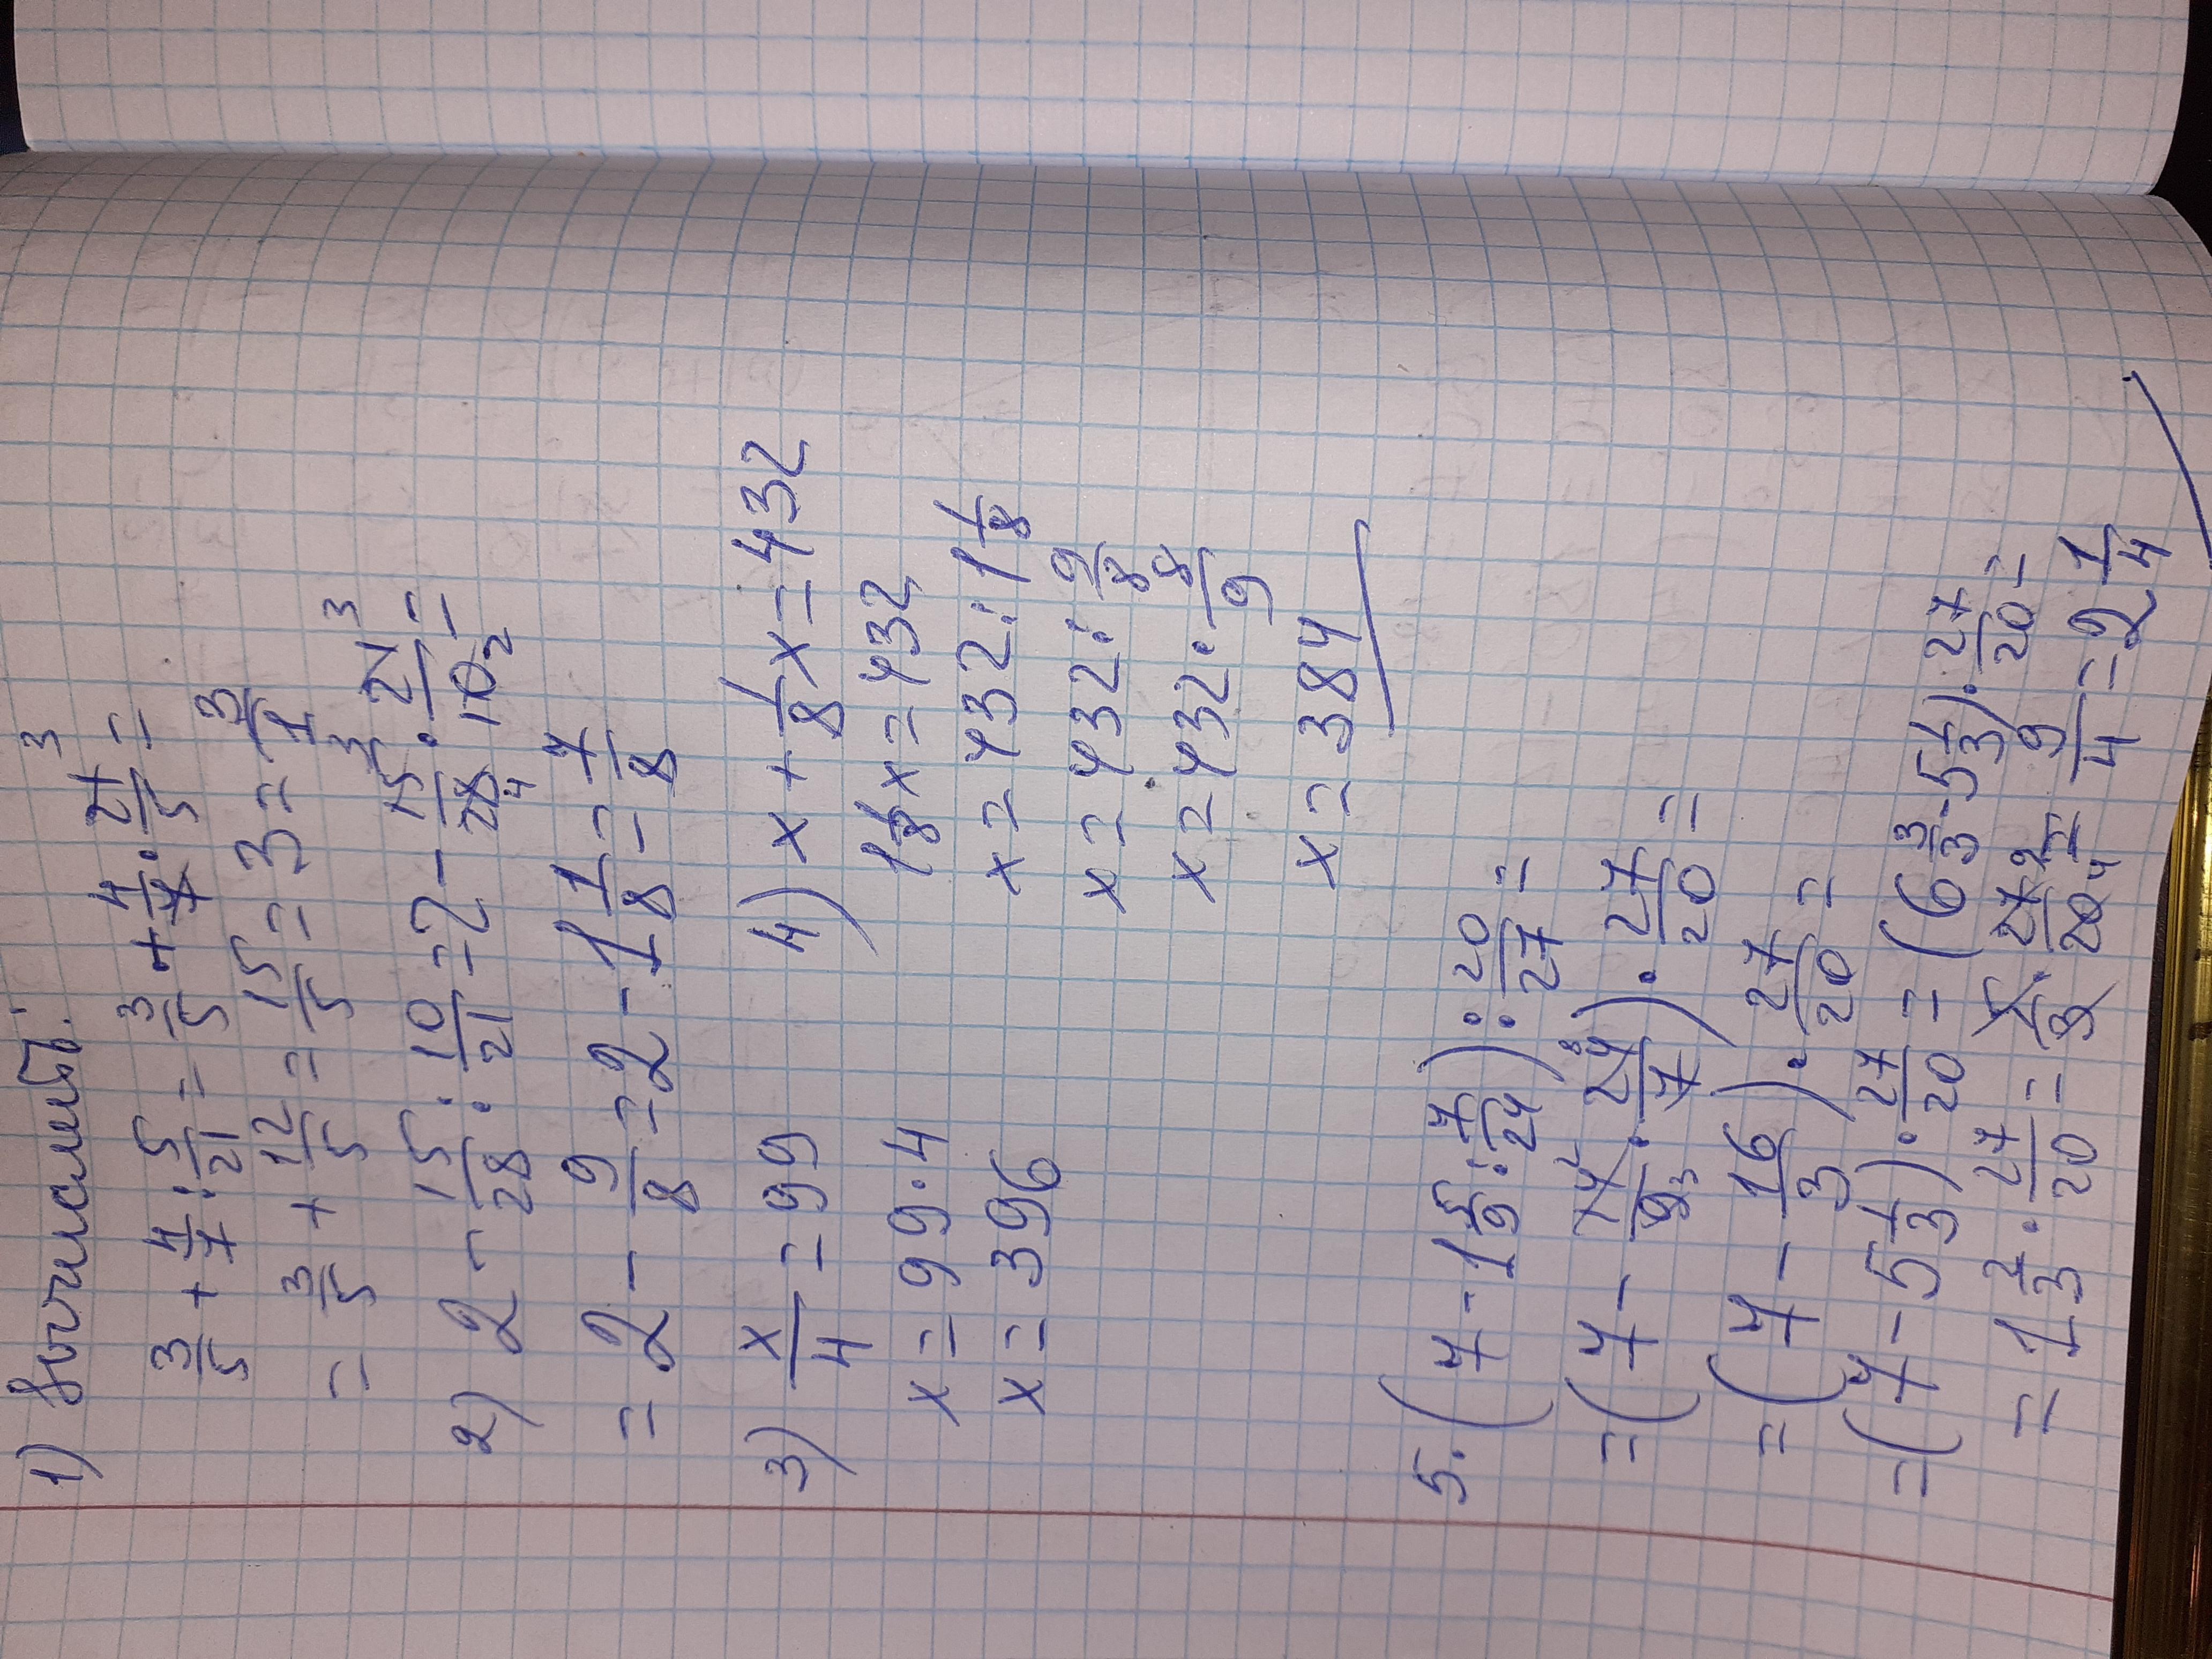 1) Вычислить:
3/5 + 4/7 : 5/21 = 3/5 + 4/7 · 21³/5 =
= 3/5 + 12/5 = 15/5 = 3 = 3/1
2) 2 - 15/28 : 10/21 = 2 - 15³/28₄ · 21³/10₂ =
= 2 - 9/8 = 2 - 1 1/8 = 7/8
3) x/4 = 99
x = 99 · 4
x = 396
4) x + 1/8 x = 432
1 1/8 x = 432
x = 432 : 1 1/8
x = 432 : 9/8
x = 432 · 8/9
x = 384
5. (7 - 1 5/9 : 7/24) : 20/27 =
= (7 - 14²/9₃ · 24⁸/7) · 27/20 =
= (7 - 16/3) · 27/20 =
= (7 - 5 1/3) · 27/20 = (6 3/3 - 5 1/3) · 27/20 =
= 1 2/3 · 27/20 = 5/3 · 27⁹/20₄ = 9/4 = 2 1/4